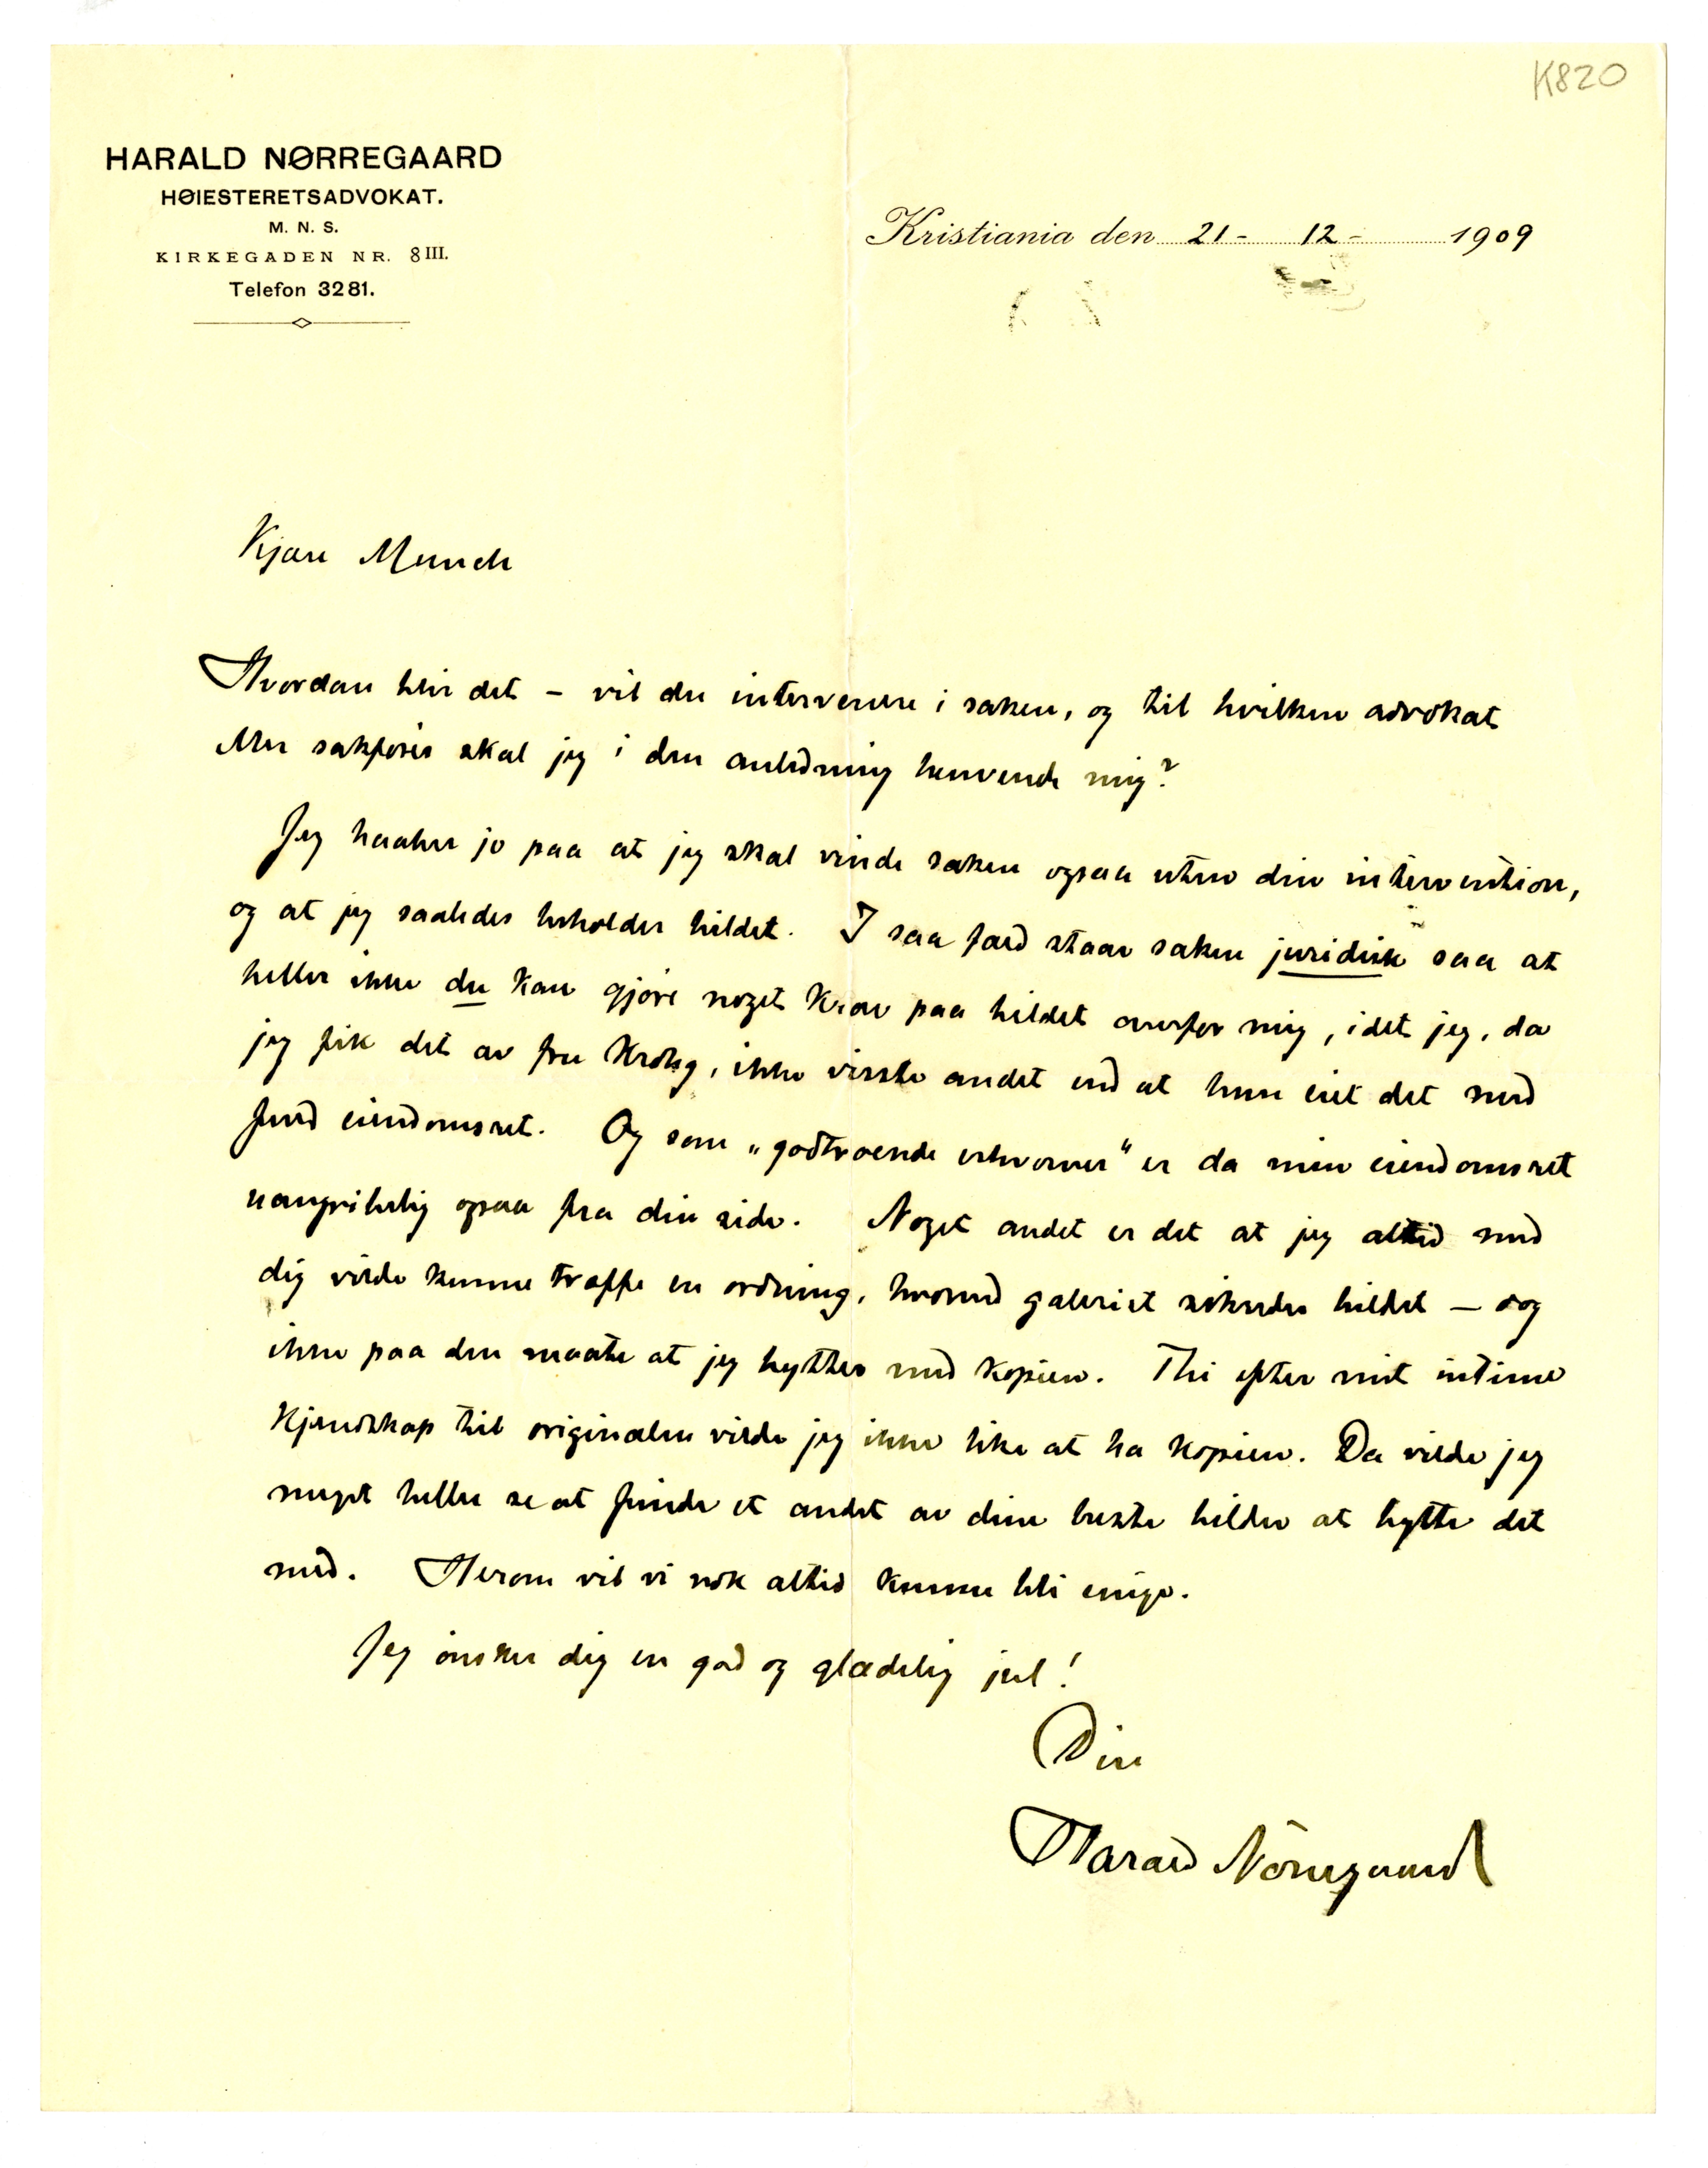 K820
HARALD NØRREGAARD
HØIESTERETSADVOKAT.
M. N. S.
KIRKEGADEN NR. 8 III.
Telefon 3281.
Kristiania den 21- 12- 1909
Kjære Munch
Hvordan blir det – vil du intervenere i saken, og til hvilken advokat
eller sakfører skal jeg i den anledning henvende mig?
Jeg haaber jo paa at jeg skal vinde saken ogsaa uten din intervention,
og at jeg saaledes beholder bildet. I saa fald staar saken juridisk saa at
heller ikke du kan gjøre noget krav paa bildet overfor mig, idet jeg, da
jeg fik det av fru Krohg, ikke visste andet end at hun eiet det med
fuld eiendomsret. Og som „godtroende erhverver" er da min eiendomsret
uangribelig ogsaa fra din side. Noget andet er det at jeg altid med
dig vilde kunne træffe en ordning, hvorved galleriet sikredes bildet – dog
ikke paa den maate at jeg bytter med kopien. Thi efter mit intime
kjendskap til originalen vilde jeg ikke like at ha kopien. Da vilde jeg
meget heller se at finde et andet av dine beste bilder at bytte det
med. Herom vil vi nok altid kunne bli enige.
Jeg ønsker dig en god og glædelig jul!
Din
Harald Nørregaard